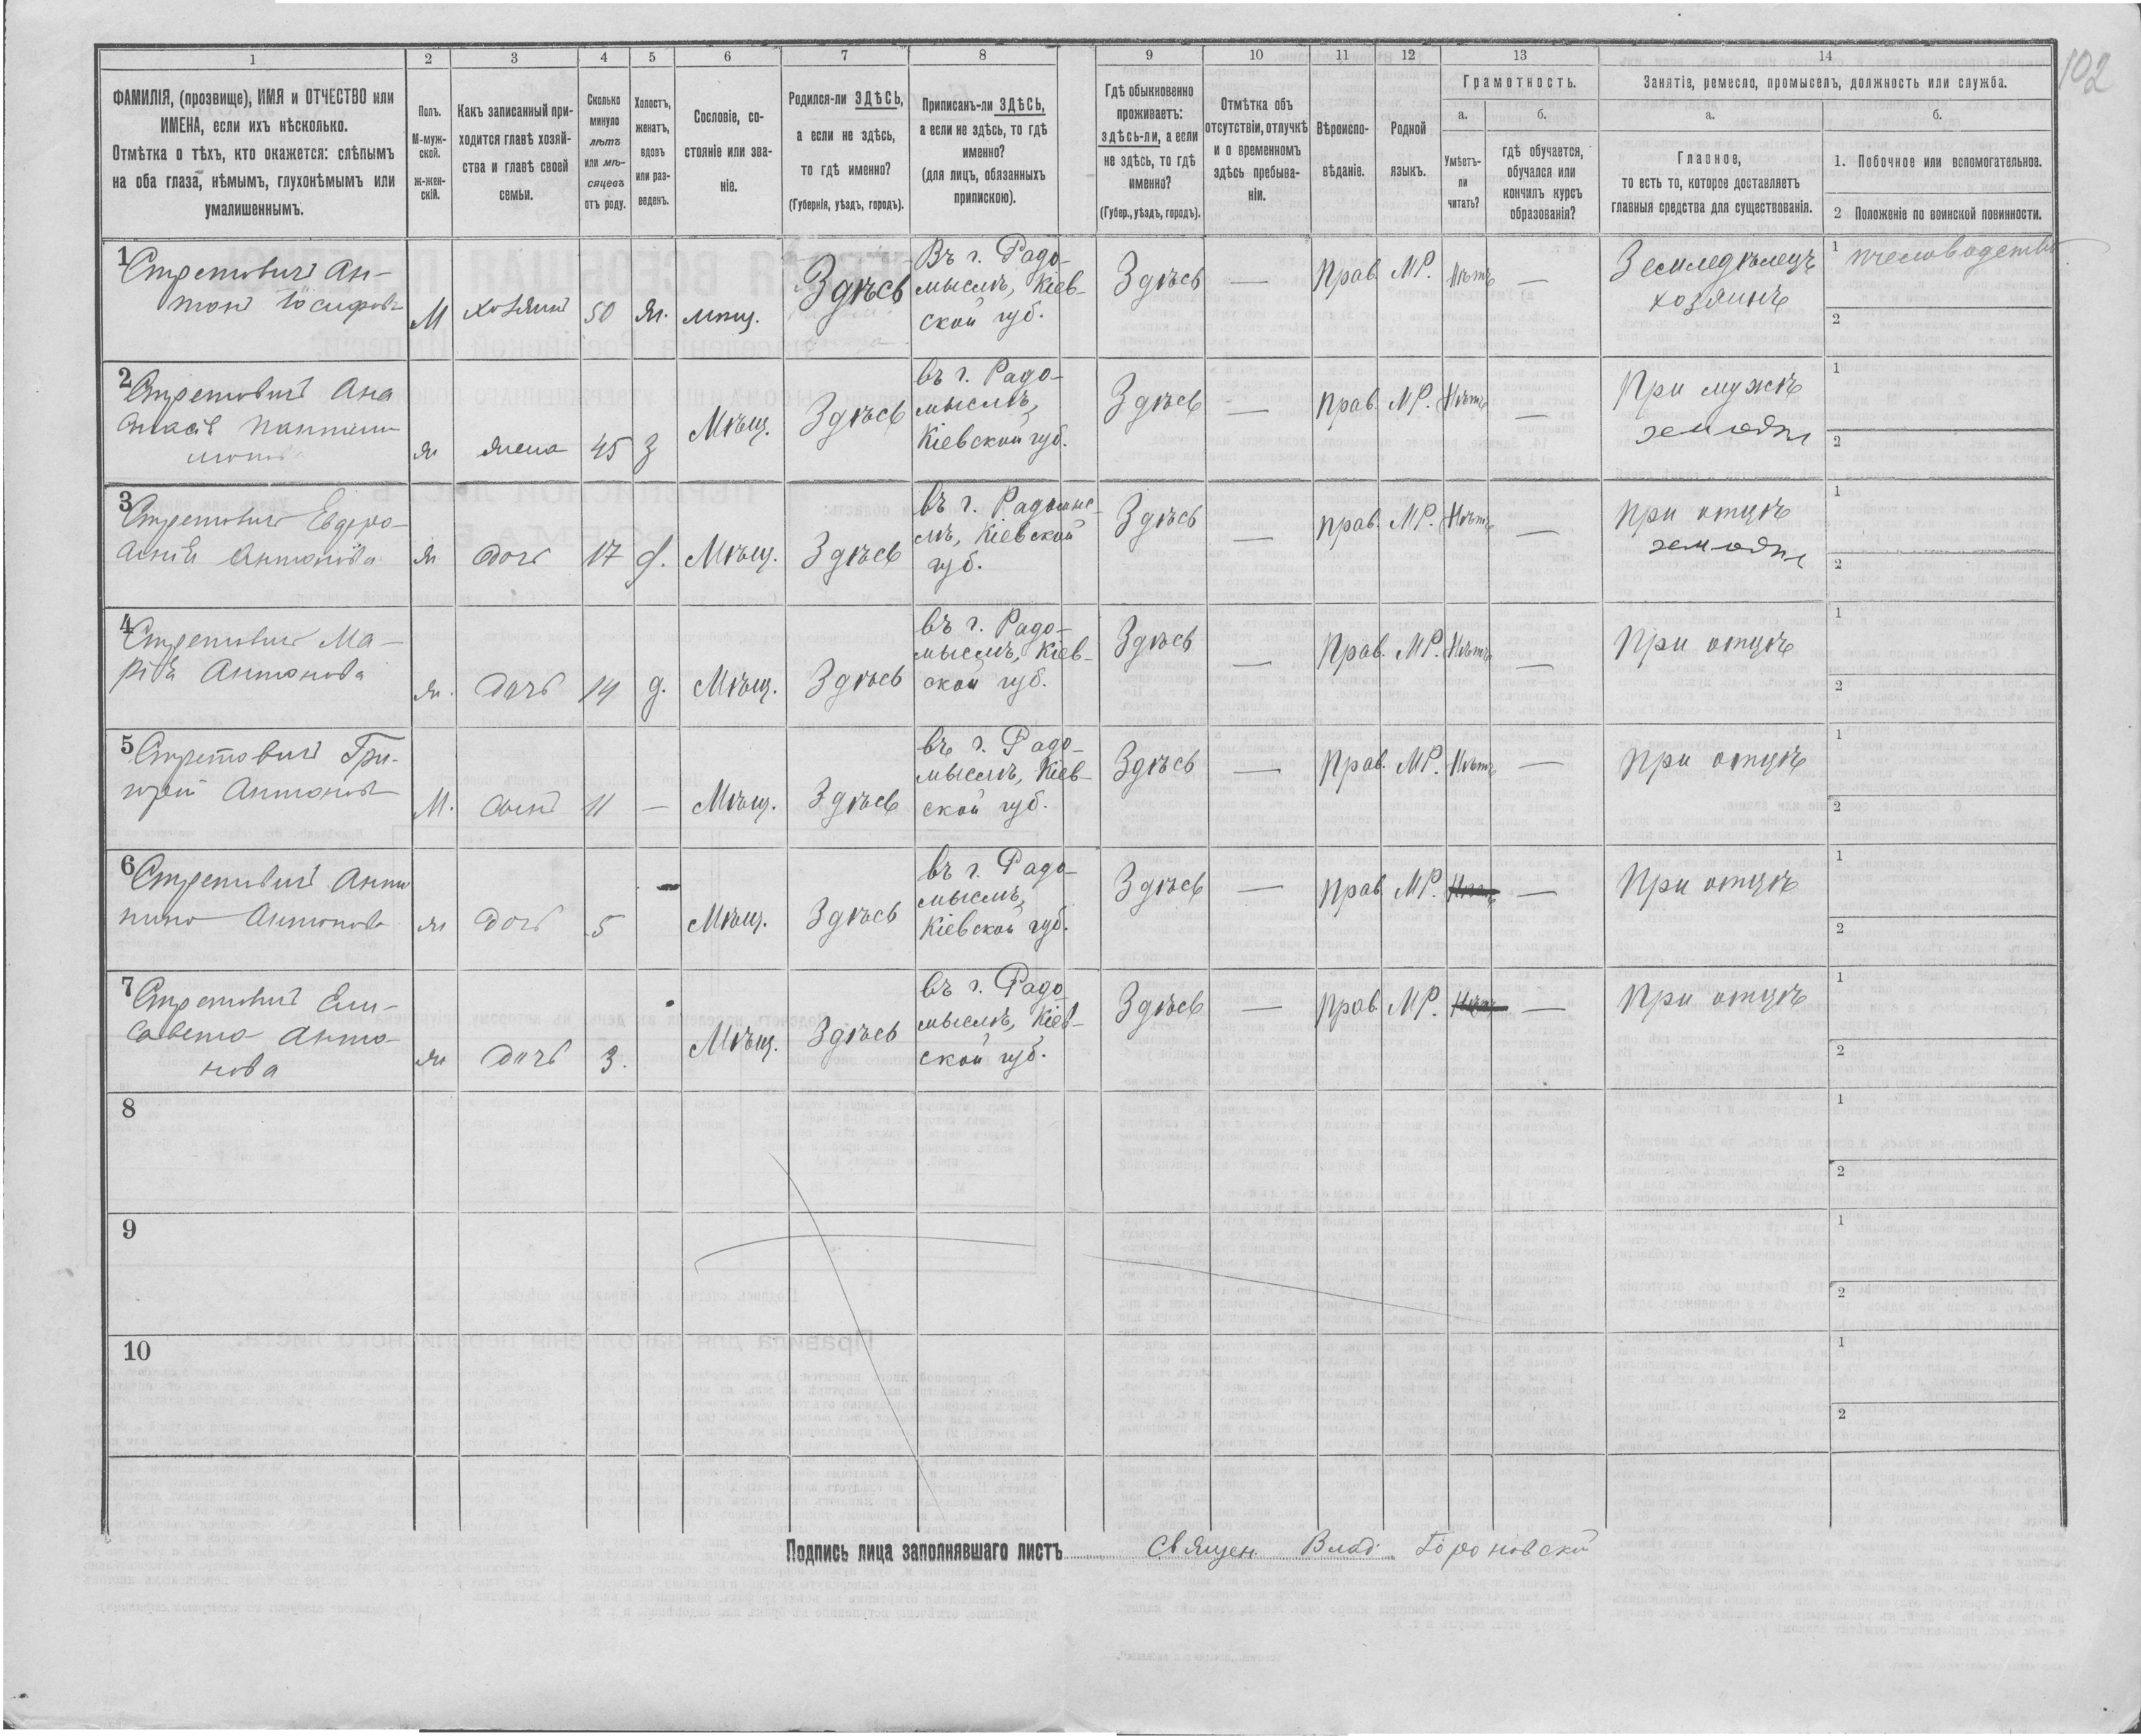 102
1 2 3 4 5 6 7 8 9 10 11 12 13 14
ФАМИЛІЯ, (прозвище), ИМЯ и ОТЧЕСТВО или
ИМЕНА, если ихъ нѣсколько.
Отмѣтка о тѣхъ, кто окажется: слѣпымъ
на оба глаза, нѣмымъ, глухонѣмымъ или
умалишеннымъ.
Полъ.
М-муж-
ской.
ж-жен-
скій.
Какъ записанный при-
ходится главѣ хозяй-
ства и главѣ своей
семьи.
Сколько
минуло
лѣтъ
или мѣ-
сяцевъ
отъ роду.
Холостъ,
женатъ,
вдовъ
или раз-
веденъ.
Сословіе, со-
стояніе или зва-
ніе.
Родился-ли ЗДѢСЬ,
а если не здѣсь,
то гдѣ именно?
(Губернія, уѣздъ, городъ).
Приписанъ-ли ЗДѢСЬ,
а если не здѣсь, то гдѣ
именно?
(для лицъ, обязанныхъ
припискою).
Гдѣ обыкновенно
проживаетъ:
здѣсь-ли, а если
не здѣсь, то гдѣ
именно?
(Губер., уѣздъ, городъ).
Отмѣтка объ
отсутствіи, отлучкѣ
и о временномъ
здѣсь пребыва-
ніи.
Вѣроиспо-
вѣданіе.
Родной
языкъ.
Грамотность.
а.
Умѣетъ-
ли
читать?
б.
гдѣ обучается,
обучался или
кончилъ курсъ
образованія?
Занятіе, ремесло, промыселъ, должность или служба.
а.
Главное,
то есть то, которое доставляетъ
главныя средства для существованія.
б.
1. Побочное или вспомогательное.
2 Положеніе по воинской повинности.
1
Стретовичъ Ан-
тонъ Іосифовъ
М хозяинъ 50 ж. мѣщ. Здѣсь
Въ г. Радо-
мыслѣ, Кіев-
ской губ.
Здѣсь — Прав. МР. Нѣтъ —
Земледѣлецъ
хозяинъ
1 пчеловодство
2
2
Стретовичъ Ана
стасія
ж жена 45 з Мѣщ. Здѣсь
въ г. Радо-
мыслѣ,
Кіевской губ.
Здѣсь — Прав. МР. Нѣтъ —
При мужѣ
1
2
3
Стретовичъ Евфро-
синія Антонова
ж дочь 17 д. Мѣщ. Здѣсь
въ г. Радомыс-
лѣ, Кіевской
губ.
Здѣсь — прав. МР. Нѣтъ —
При отцѣ
1
2
4
Стретовичъ Ма-
рія Антонова
ж. дочь 14 д. Мѣщ. Здѣсь
въ г. Радо-
мыслѣ, Кіев-
ской губ.
Здѣсь — Прав. МР. Нѣтъ —
При отцѣ
1
2
5
Стретовичъ Гри-
горій Антоновъ
М. сынъ 11 — Мѣщ. Здѣсь
въ г. Радо-
мыслѣ, Кіев-
ской губ.
Здѣсь — Прав. МР. Нѣтъ —
При отцѣ
1
2
6
Стретовичъ
Антонова
ж дочь 5 Мѣщ. Здѣсь
въ г. Радо-
мыслѣ,
Кіевской губ.
Здѣсь — Прав МР. Нѣтъ —
При отцѣ
1
2
7
Стретовичъ Ели-
савета Анто-
нова
ж дочь 3. Мѣщ. Здѣсь
въ г. Радо
мыслѣ, Кіев-
ской губ.
Здѣсь — Прав МР. Нѣтъ —
При отцѣ
1
2
8
1
2
9
1
2
10
1
2
Подпись лица заполнявшаго листъ Священ Влад. Гороновскій